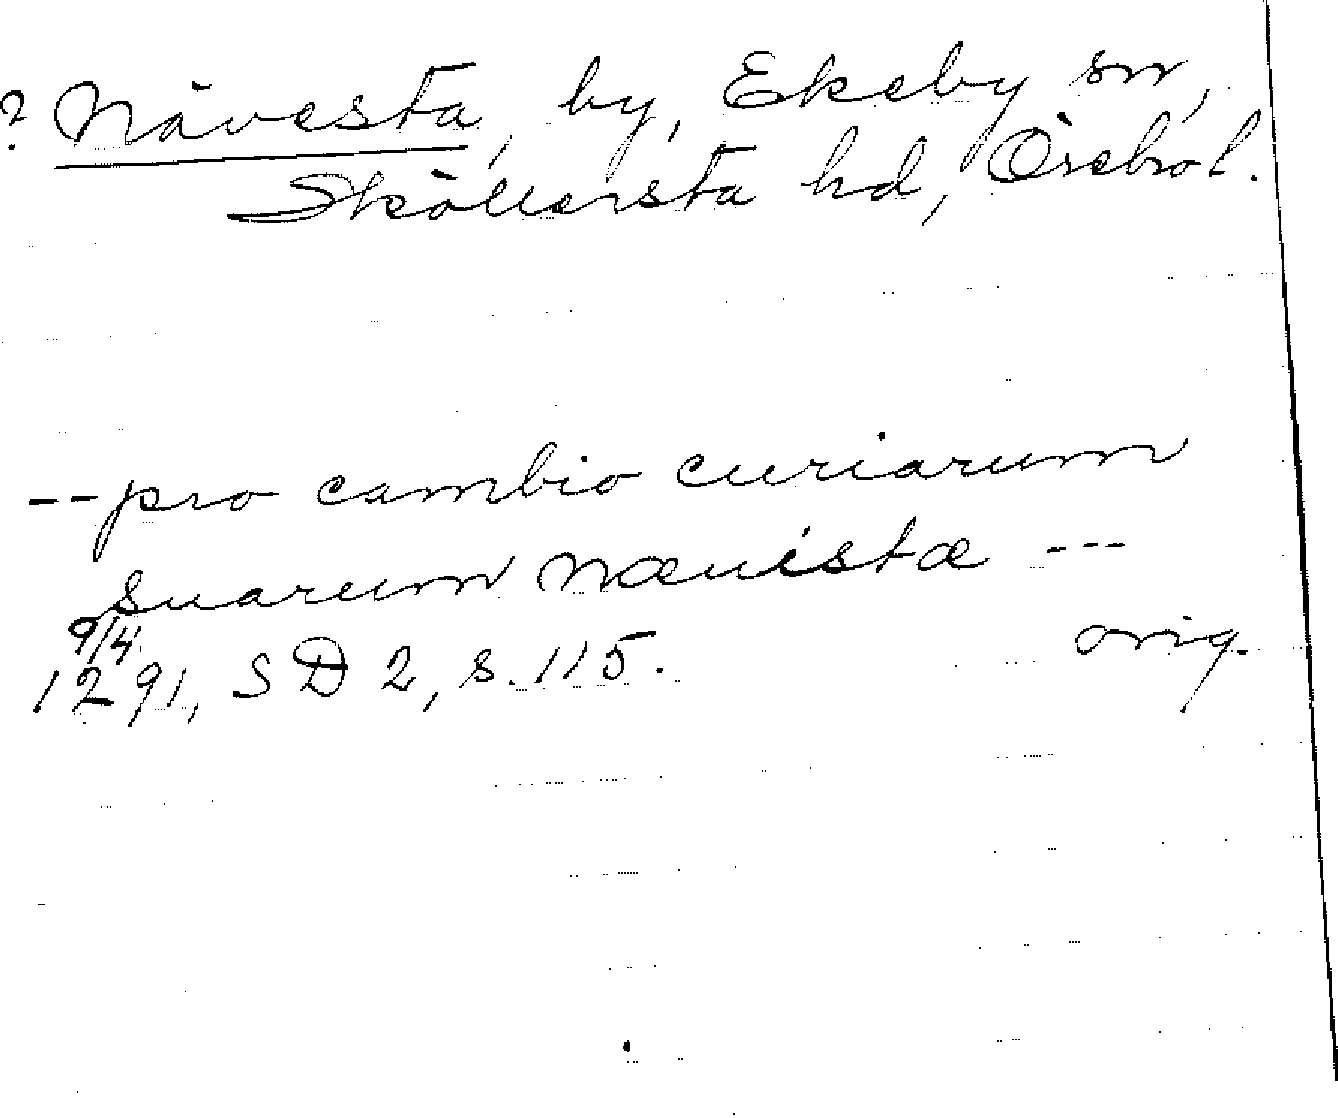 ? Nävesta, by, Ekeby sn,
Sköllersta hd, Örebro l.
-- pro cambio curiarum
suarum næuistæ ---
9/4
1291, SD 2, s. 115. orig.